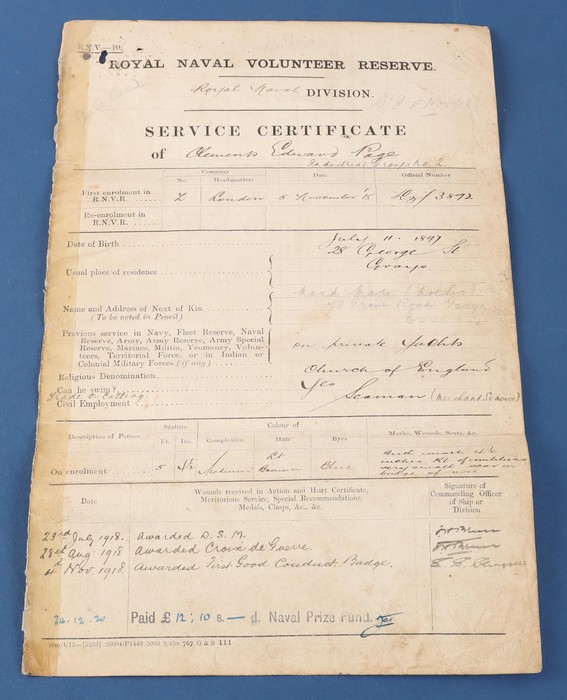 R.N.V.—70.
ROYAL NAVAL VOLUNTEER RESERVE.
Royal Naval DIVISION.
SERVICE CERTIFICATE
of Clements Edward Page
Company
No. Headquarters Date Official Number
First enrolment in
R.N.V.R. ...... Z London 5 November '15 3892
Re-enrolment in
R.N.V.R. ......
Date of Birth July 11. 1897
Usual place of residence 28 George St
Grays
Name and Address of Next of Kin
(To be noted in Pencil)
Previous service in Navy, Fleet Reserve, Naval
Reserve, Army, Army Reserve, Army Special
Reserve, Marines, Militia, Yeomanry, Volun-
teers, Territorial Force, or in Indian or
Colonial Military Forces (if any)
on private Yachts
Religious Denomination Church of England
Can he swim? Yes
Trade or Calling
Civil Employment Seaman (Merchant Service)
Description of Person Stature Colour of Marks, Wounds, Scars, &c.
Ft. In. Complexion Hair Eyes
On enrolment 5 Lt Brown Blue
Birth mark
very small scar on
bridge of nose
Date
Wounds received in Action and Hurt Certificate,
Meritorious Service, Special Recommendations,
Medals, Clasps, &c., &c.
Signature of
Commanding Officer
of Ship or
Division
23rd July 1918. Awarded D.S.M.
28th Aug 1918 Awarded Croix de Guerre.
4th Nov. 1918. Awarded First Good Conduct Badge.
20.12.20 Paid £12:10 s.— d. Naval Prize Fund.
G & S 111